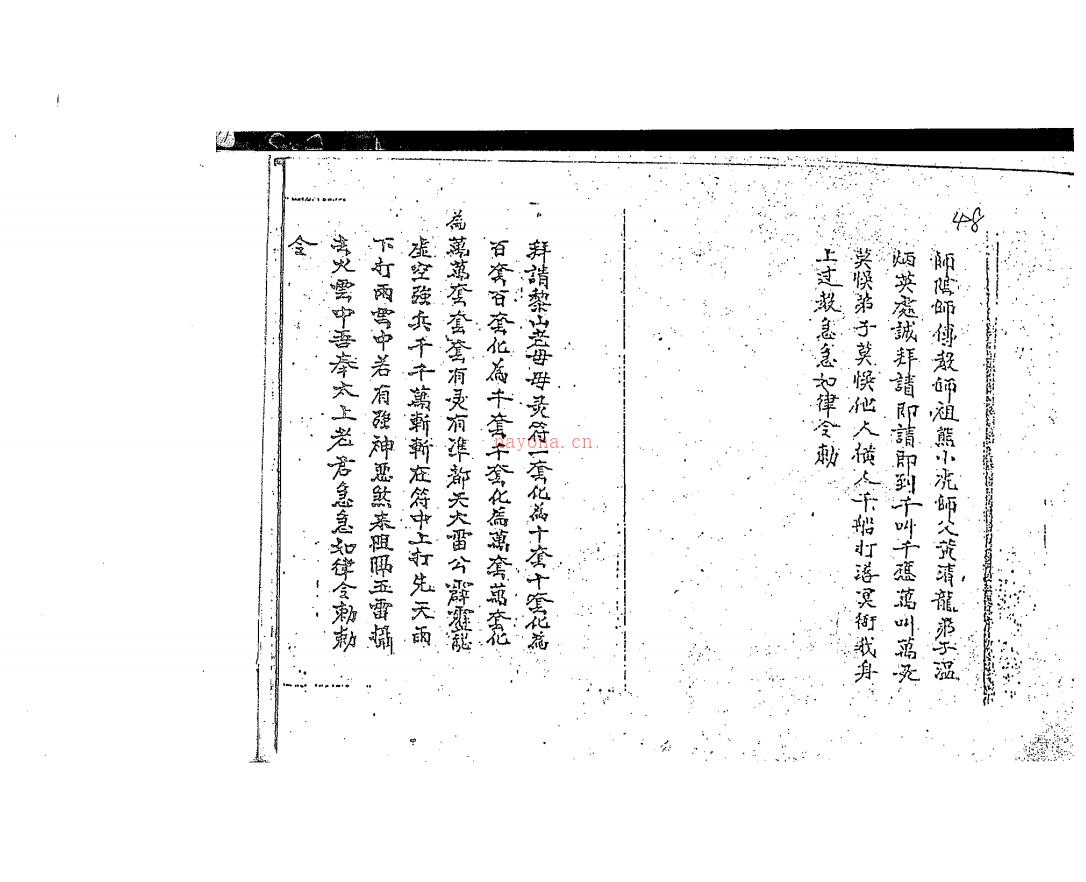 48
師陰師傅教師祖熊小洗師父黃清龍弟子溫
炳英處誠拜請即請即到千叫千應萬叫萬灵
莫悮弟子莫悮他人橫人千船打落冥衙我身
上过教急急如律令勅
拜請黎山老母母灵符一套化為十套十套化為
百套百套化為千套千套化為萬套萬套化
為萬萬套套套有灵有準都天大雷公霹靂能
虛空強兵千千萬斬斬在符中上打先天雨
下打雨雪中若有强神惡煞来阻隔玉雷攝
去火雲中吾奉太上老君急急如律令勅勅
令
nayona.cn.